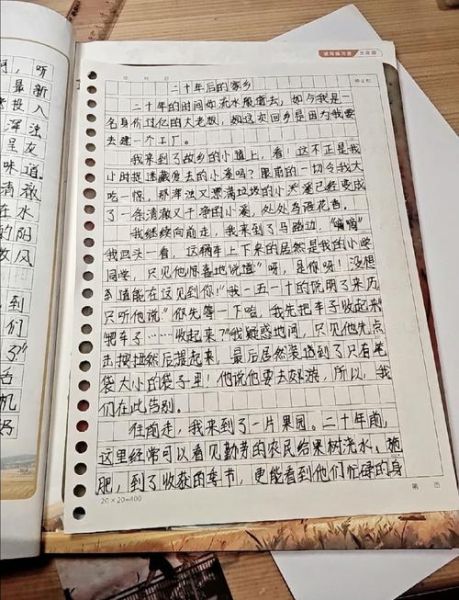 二十年后的家乡
二十年的时间如流水般匆去，如今我是一
名身价过亿的大老板，而这次回乡是因为我要
去建一个工厂。
我来到了故乡的小道上，看！这不正是我
小时捉迷藏爱去的小溪吗？眼前的一切令我大
吃一惊，那浑浊又票满垃圾的小溪已经变成
了一条清澈又干净的小溪，处处鸟语花香。
我继续向前走，我来到了马路边，“嘀嘀”
我回头一看，这辆车上下来的居然是我的小学
同学，只见他惊喜地说道“呀，是你呀！没想
到道能在这见到你！”我一五一十的说明了来历
只听他说“你先等一下哈，我先把车子收起来”
“把车子……收起来？”我疑惑地问，只见他先点
击按扭然后提起来，最后居然装进到了只有笔
袋大小的袋子里！他说他要去郊游，所以，我
们在此告别。
往前走，我来到了一片果园。二十年前，
这里经常可以看见勤劳的农民给果树浇水、施
肥，到了收获的季节，更能看到他们忙碌的身
20×20=400
第 页
听
最新
投入
浑浊
呈友
味道
清澈
在水
的阳
放风
到
们
了”
舌
机
好